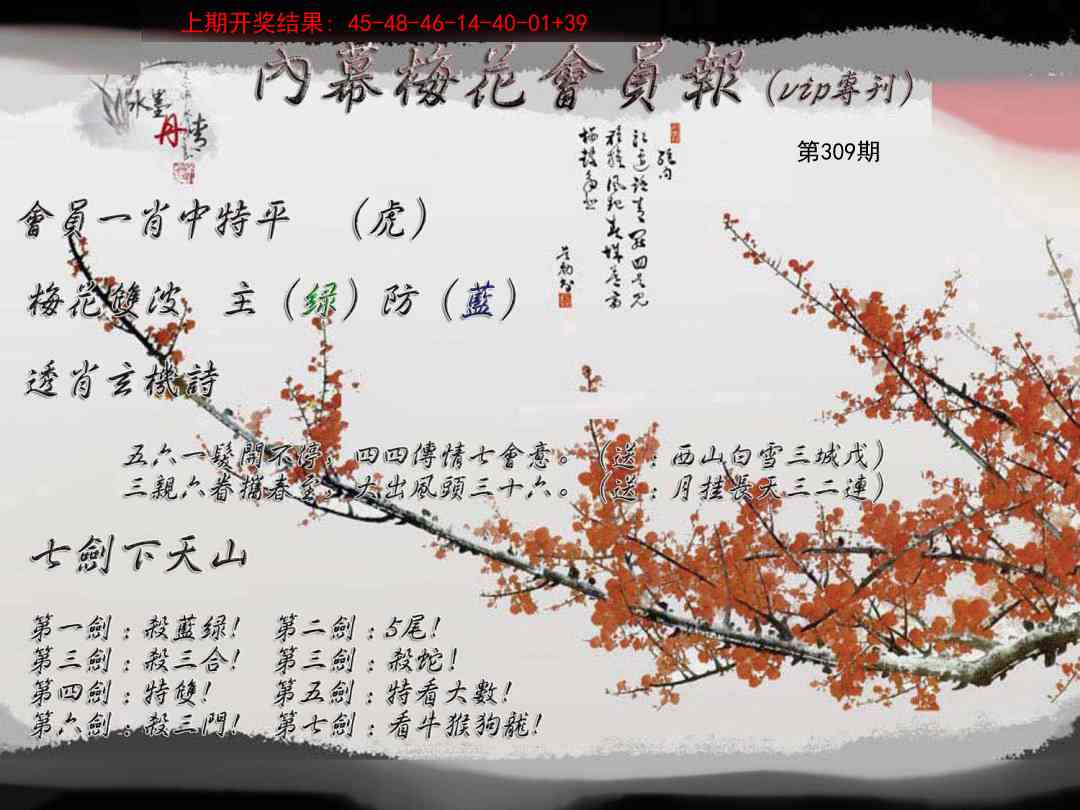 上期开奖结果: 45-48-46-14-40-01+39
內幕梅花會員報(vip專刊)
水墨
丹
情
第309期
會員一肖中特平 (虎)
梅花雙波 主(绿)防(藍)
透肖玄機詩
五六一髮鬧不停,四四傳情七會意。(送:西山白雪三城戍)
三親六眷攜春至,大出風頭三十六。(送:月挂長天三二連)
七劍下天山
第一劍:殺藍绿! 第二劍:5尾!
第三劍:殺三合! 第三劍:殺蛇!
第四劍:特雙! 第五劍:特看大數!
第六劍:殺三門! 第七劍:看牛猴狗龍!